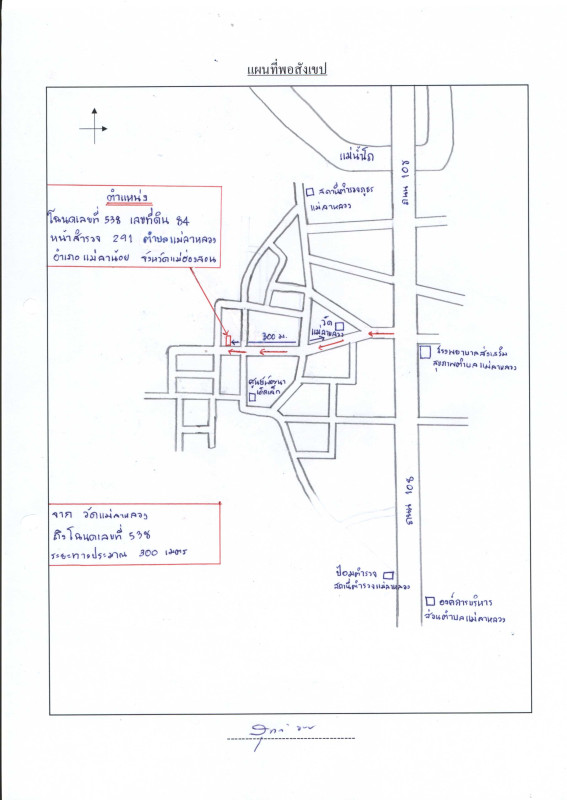 แผนที่พอสังเขป
แม่น้ำ
ถนน 108
สถานีตำรวจภูธร
แม่ลาหลวง
ตำแหน่ง
โฉนดเลขที่ 538 เลขที่ดิน 84
หน้าสำรวจ 291 ตำบลแม่ลาหลวง
อำเภอแม่ลาน้อย จังหวัดแม่ฮ่องสอน
วัด
แม่ลาหลวง
300 ม.
โรงพยาบาลส่งเสริม
สุขภาพตำบลแม่ลาหลวง
ศูนย์พัฒนา
เด็กเล็ก
ถนน 108
จาก วัดแม่ลาหลวง
ถึง โฉนดเลขที่ 538
ระยะทางประมาณ 300 เมตร
ป้อมตำรวจ
สถานีตำรวจแม่ลาหลวง
องค์การบริหาร
ส่วนตำบลแม่ลาหลวง